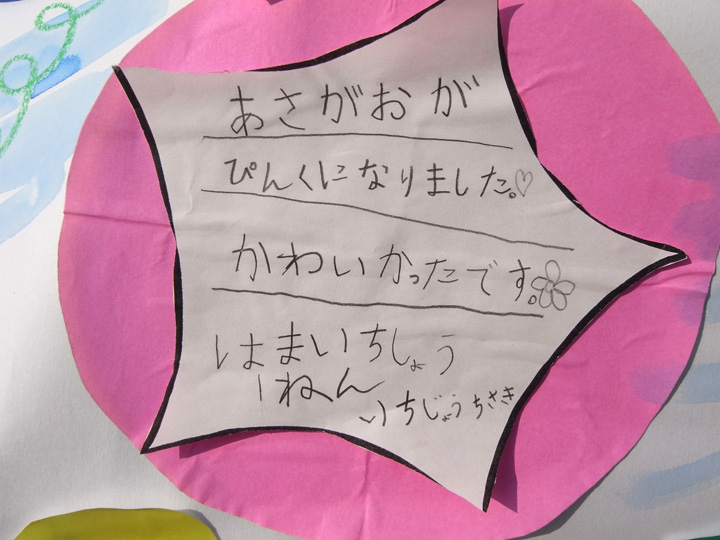 あさがおが
ぴんくになりました。♡
かわいかったです。
はまいちしょう
1ねん
いちじょうちさき